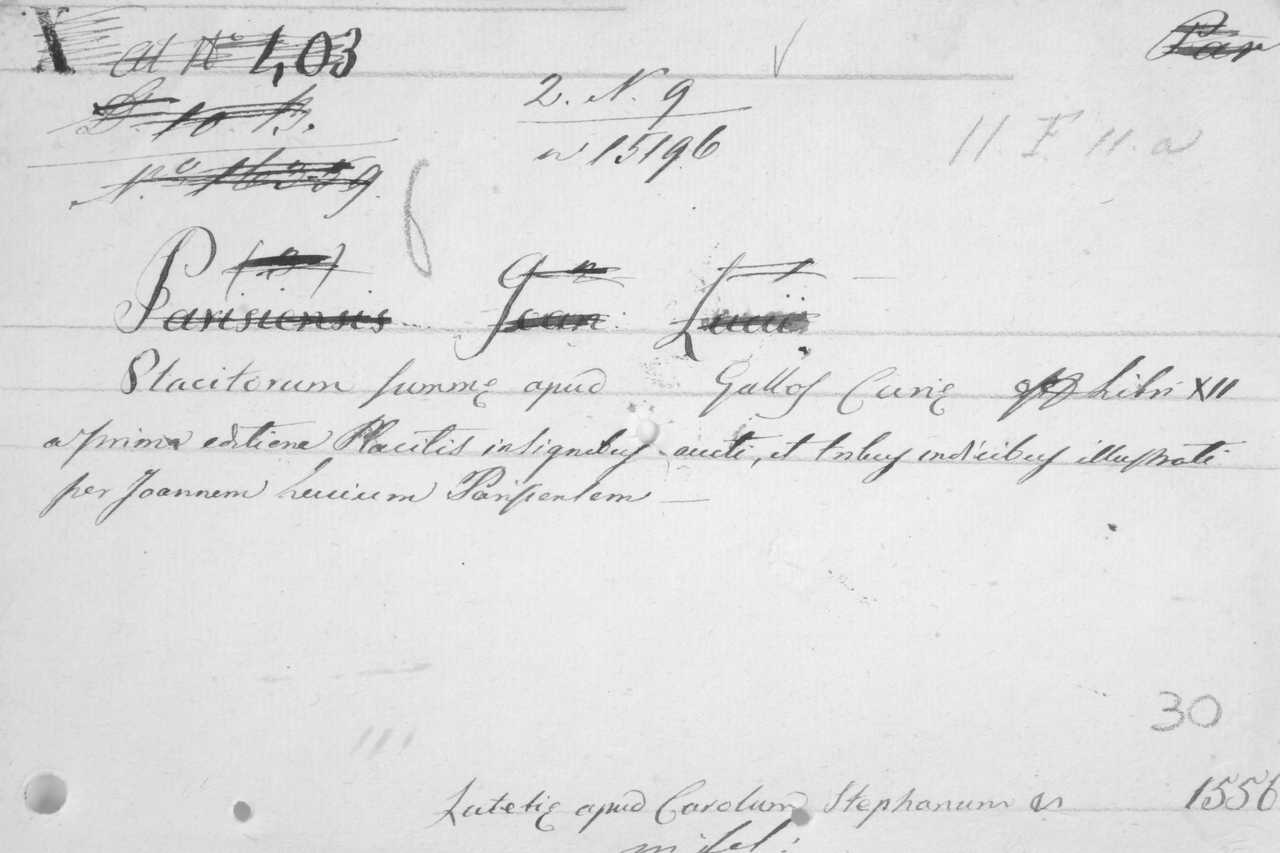 X at No 1,03 Par
D. 10. 13. 2. N. 9
No 16359. n 15196 11. F. 11. a
Parisiensis (B) Joan Lucii
Placitorum summę apud Gallos Curię Libri XII
a prima editione Placitis insignibus aucti, et tribus indicibus illustrati
per Joannem Lucium Parisientem —
30
Lutetię apud Carolum Stephanum 1556